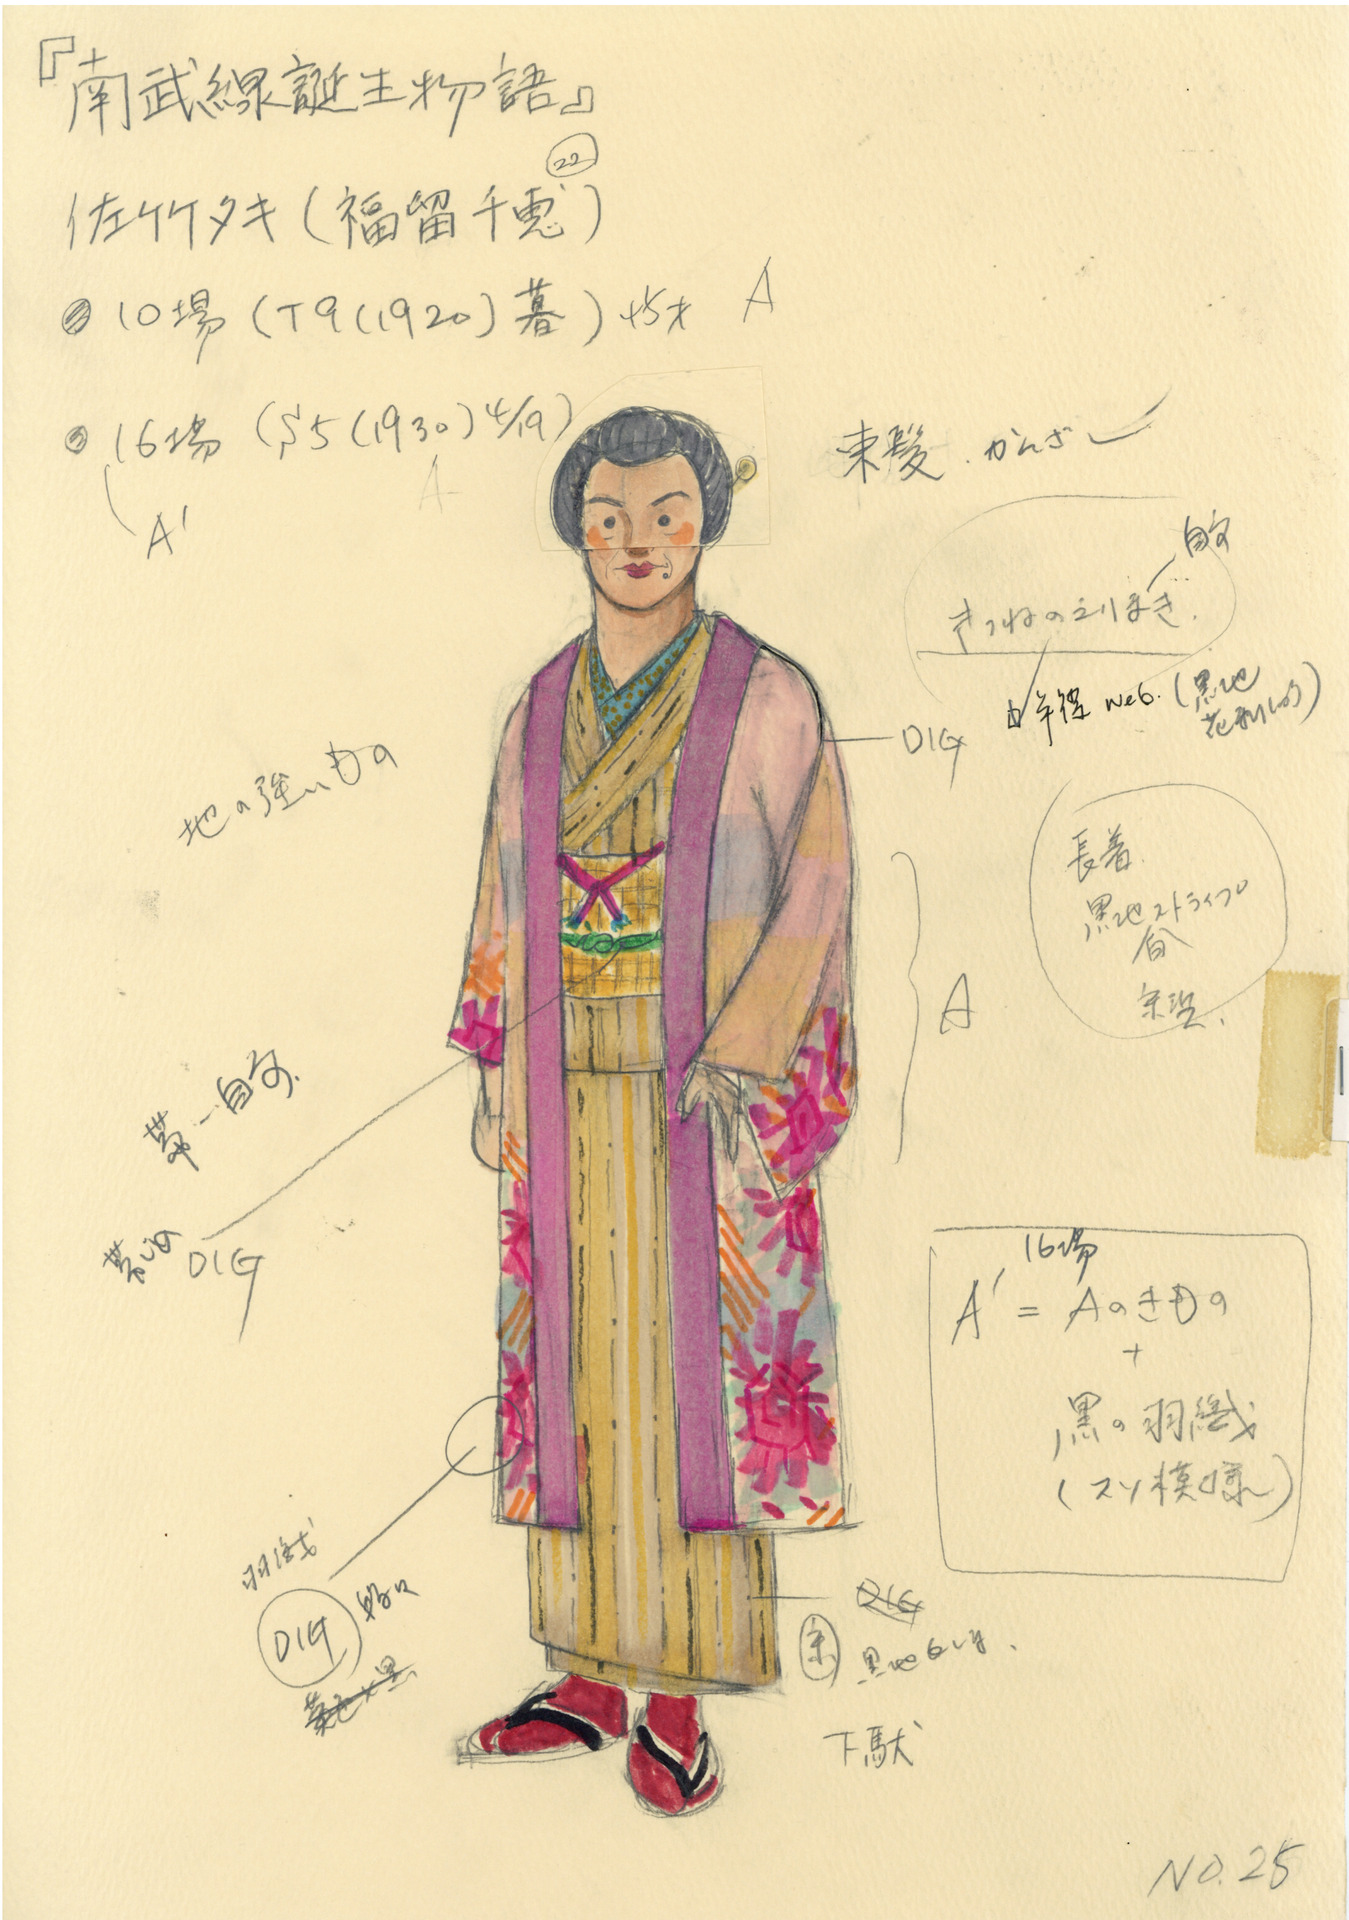 『南武線誕生物語』
22
佐竹タキ(福留千恵)
10場(T9(1920)暮)45才 A
16場(S5(1930)4/19)
A'
A
束髪.かんざし
自分
きつねのえりまき.
半襟 web.(黒地
DIG
地の強いもの
長着.
黒地ストライプ
A
帯…自分.
DIG
16場
A' = Aのきもの
+
黒の羽織
(スソ模様)
羽織
DIG
DIG
黒地
下駄
NO.25